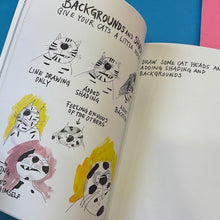 BACKGROUNDS AND
GIVE YOUR CATS A LITTLE
LINE DRAWING
ONLY
ADDED
SHADING
FEELING ENVIOUS
OF THE OTHERS
HIMSELF
DRAW SOME CAT HEADS AND
ADDING SHADING AND
BACKGROUNDS